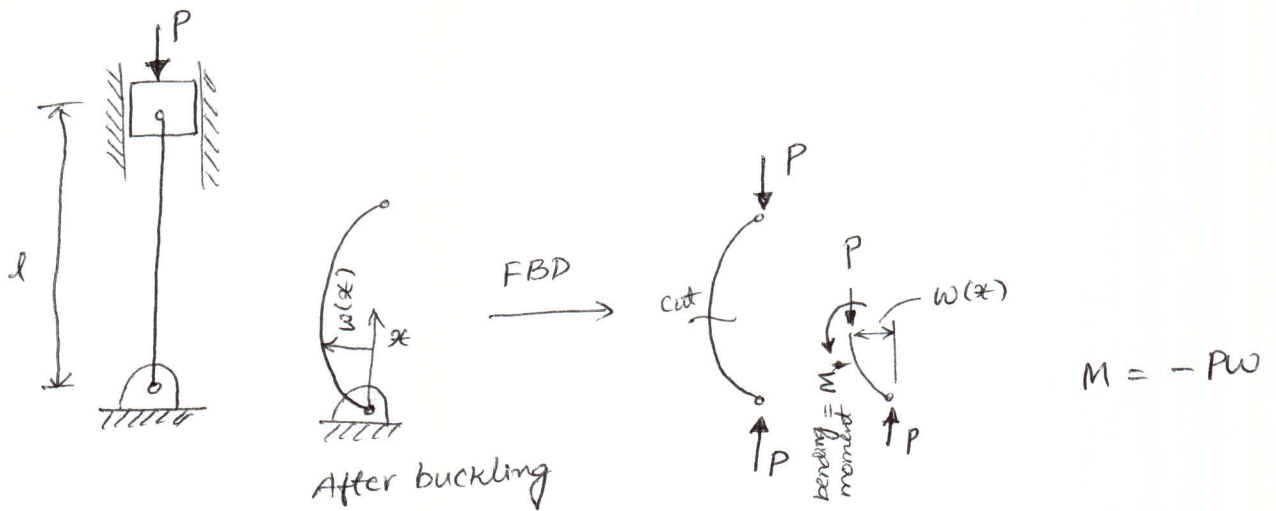 P
l
w(x)
x
After buckling
FBD
P
cut
P
P
w(x)
M = bending moment
P
M = - PW